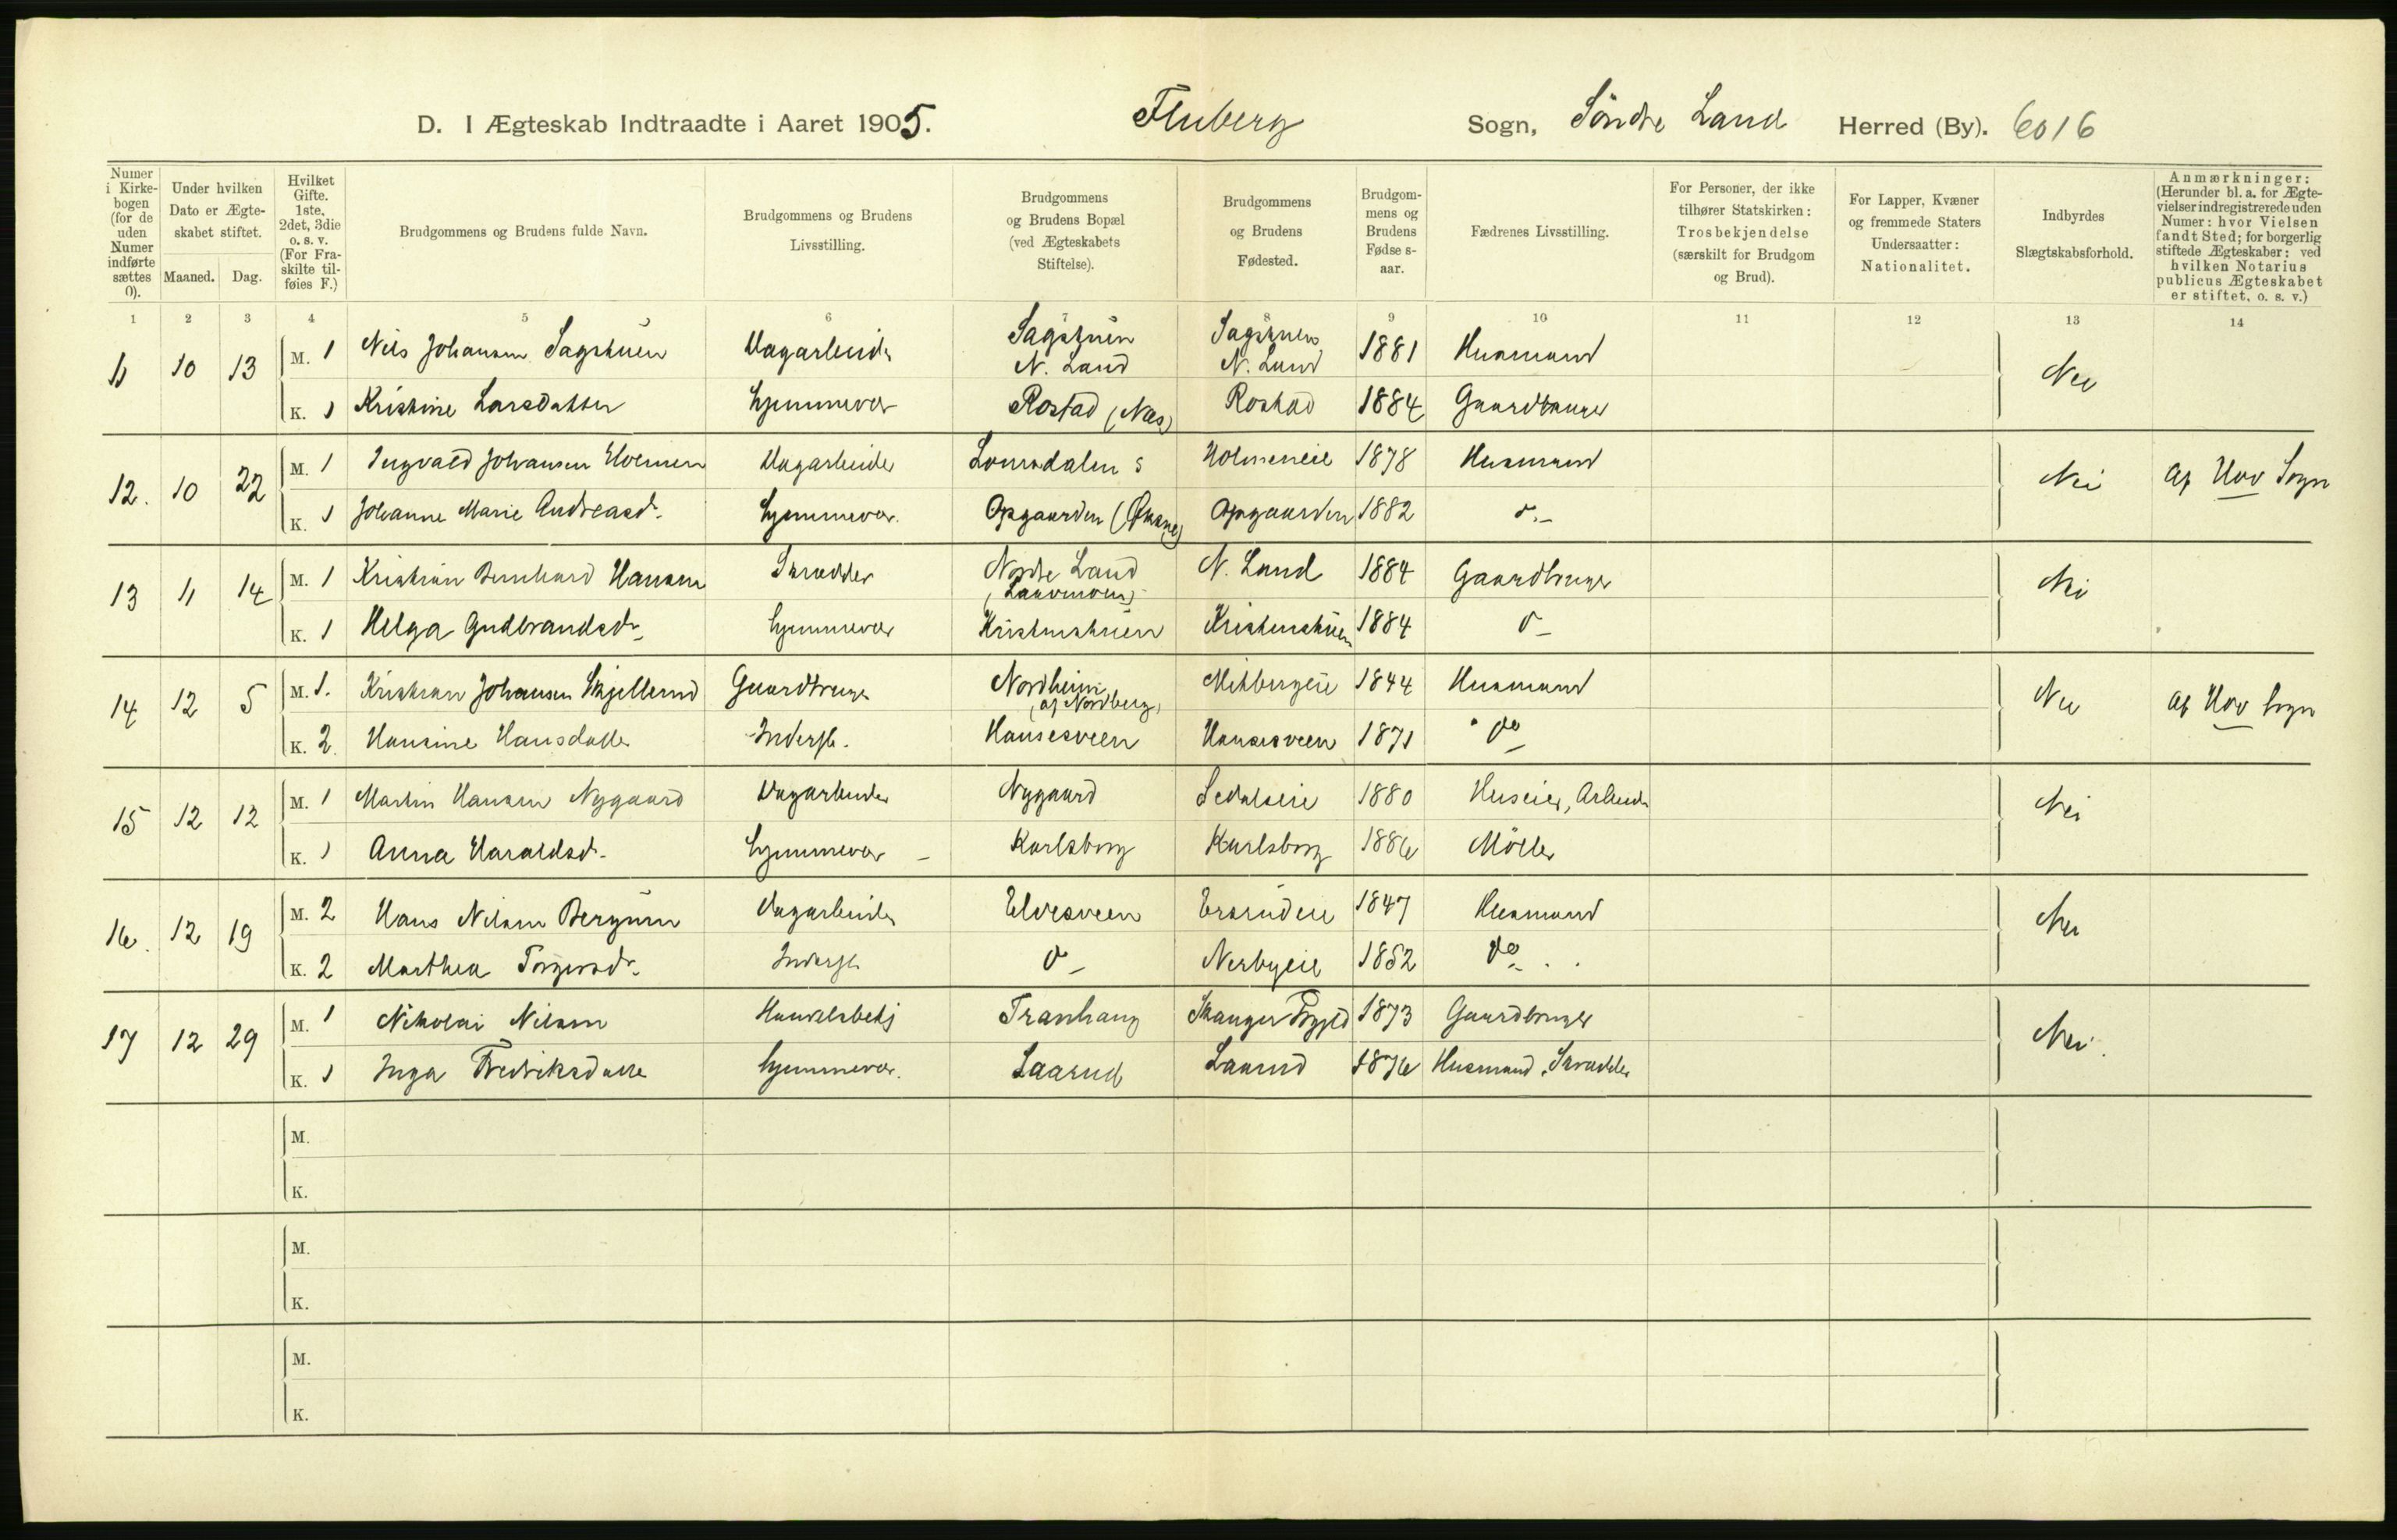 D. I Ægteskab Indtraadte i Aaret 1905. Fluberg Sogn, Søndre Land Herred (By). 6016
Numer i Kirkebogen (for de uden Numer indførte sættes 0).
Under hvilken Dato er Ægteskabet stiftet.
Maaned. Dag.
Hvilket Gifte. 1ste, 2det, 3die o. s. v. (For Fraskilte tilføies F.)
Brudgommens og Brudens fulde Navn.
Brudgommens og Brudens Livsstilling.
Brudgommens og Brudens Bopæl (ved Ægteskabets Stiftelse).
Brudgommens og Brudens Fødested.
Brudgommens og Brudens Fødselsaar.
Fædrenes Livsstilling.
For Personer, der ikke tilhører Statskirken: Trosbekjendelse (særskilt for Brudgom og Brud).
For Lapper, Kvæner og fremmede Staters Undersaatter: Nationalitet.
Indbyrdes Slægtskabsforhold.
Anmærkninger: (Herunder bl. a. for Ægtevielser indregistrerede uden Numer: hvor Vielsen fandt Sted; for borgerlig stiftede Ægteskaber: ved hvilken Notarius publicus Ægteskabet er stiftet, o. s. v.)
1 2 3 4 5 6 7 8 9 10 11 12 13 14
11 10 13 M. 1 Nils Johansen Sagstuen Dagarbeider Sagstuen N. Land Sagstuen N. Land 1881 Husmand Nei
K. 1 Kristine Larsdatter hjemmevær Rostad (Næs) Rostad 1884 Gaardbruger
12. 10 22 M. 1 Ingvald Johansen Dagarbeider 1878 Husmand Nei af Hov Sogn
K. 1 Johanne Marie Andreasd. hjemmevær. Opgaarden Opgaarden 1882 do
13 11 14 M. 1 Kristian Bernhard Hansen Skrædder Nordre Land (Landmoen) N. Land 1884 Gaardbruger Nei
K. 1 Helga Gudbrandsdr. hjemmevær Kristinstuen Kristinstuen 1884 do
14 12 5 M. 1. Kristian Johansen Skjellerud Gaardbruger Nordheim (af Nordberg) 1844 Husmand Nei af Hov Sogn
K. 2. Hansine Hansdatter Inderst. Hansesveen Hansesveen 1871 do
15 12 12 M. 1 Martin Hansen Nygaard Dagarbeider Nygaard 1880 Huseier, Arbeider Nei
K. 1 Anna Haraldsd. hjemmevær Karlsborg Karlsborg 1886 Møller
16. 12 19 M. 2 Hans Nilsen Dagarbeider Elvesveen 1847 Husmand Nei
K. 2 Marthea Torgersdr. Inderst do Nerbyeie 1852 do
17 12 29 M. 1 Nikolai Nilsen Handelsbetj Tranhaug 1873 Gaardbruger Nei.
K. 1 Inga Fredriksdatter hjemmevær. Laarud Laarud 1876 Husmand, Skrædder
M.
K.
M.
K.
M.
K.